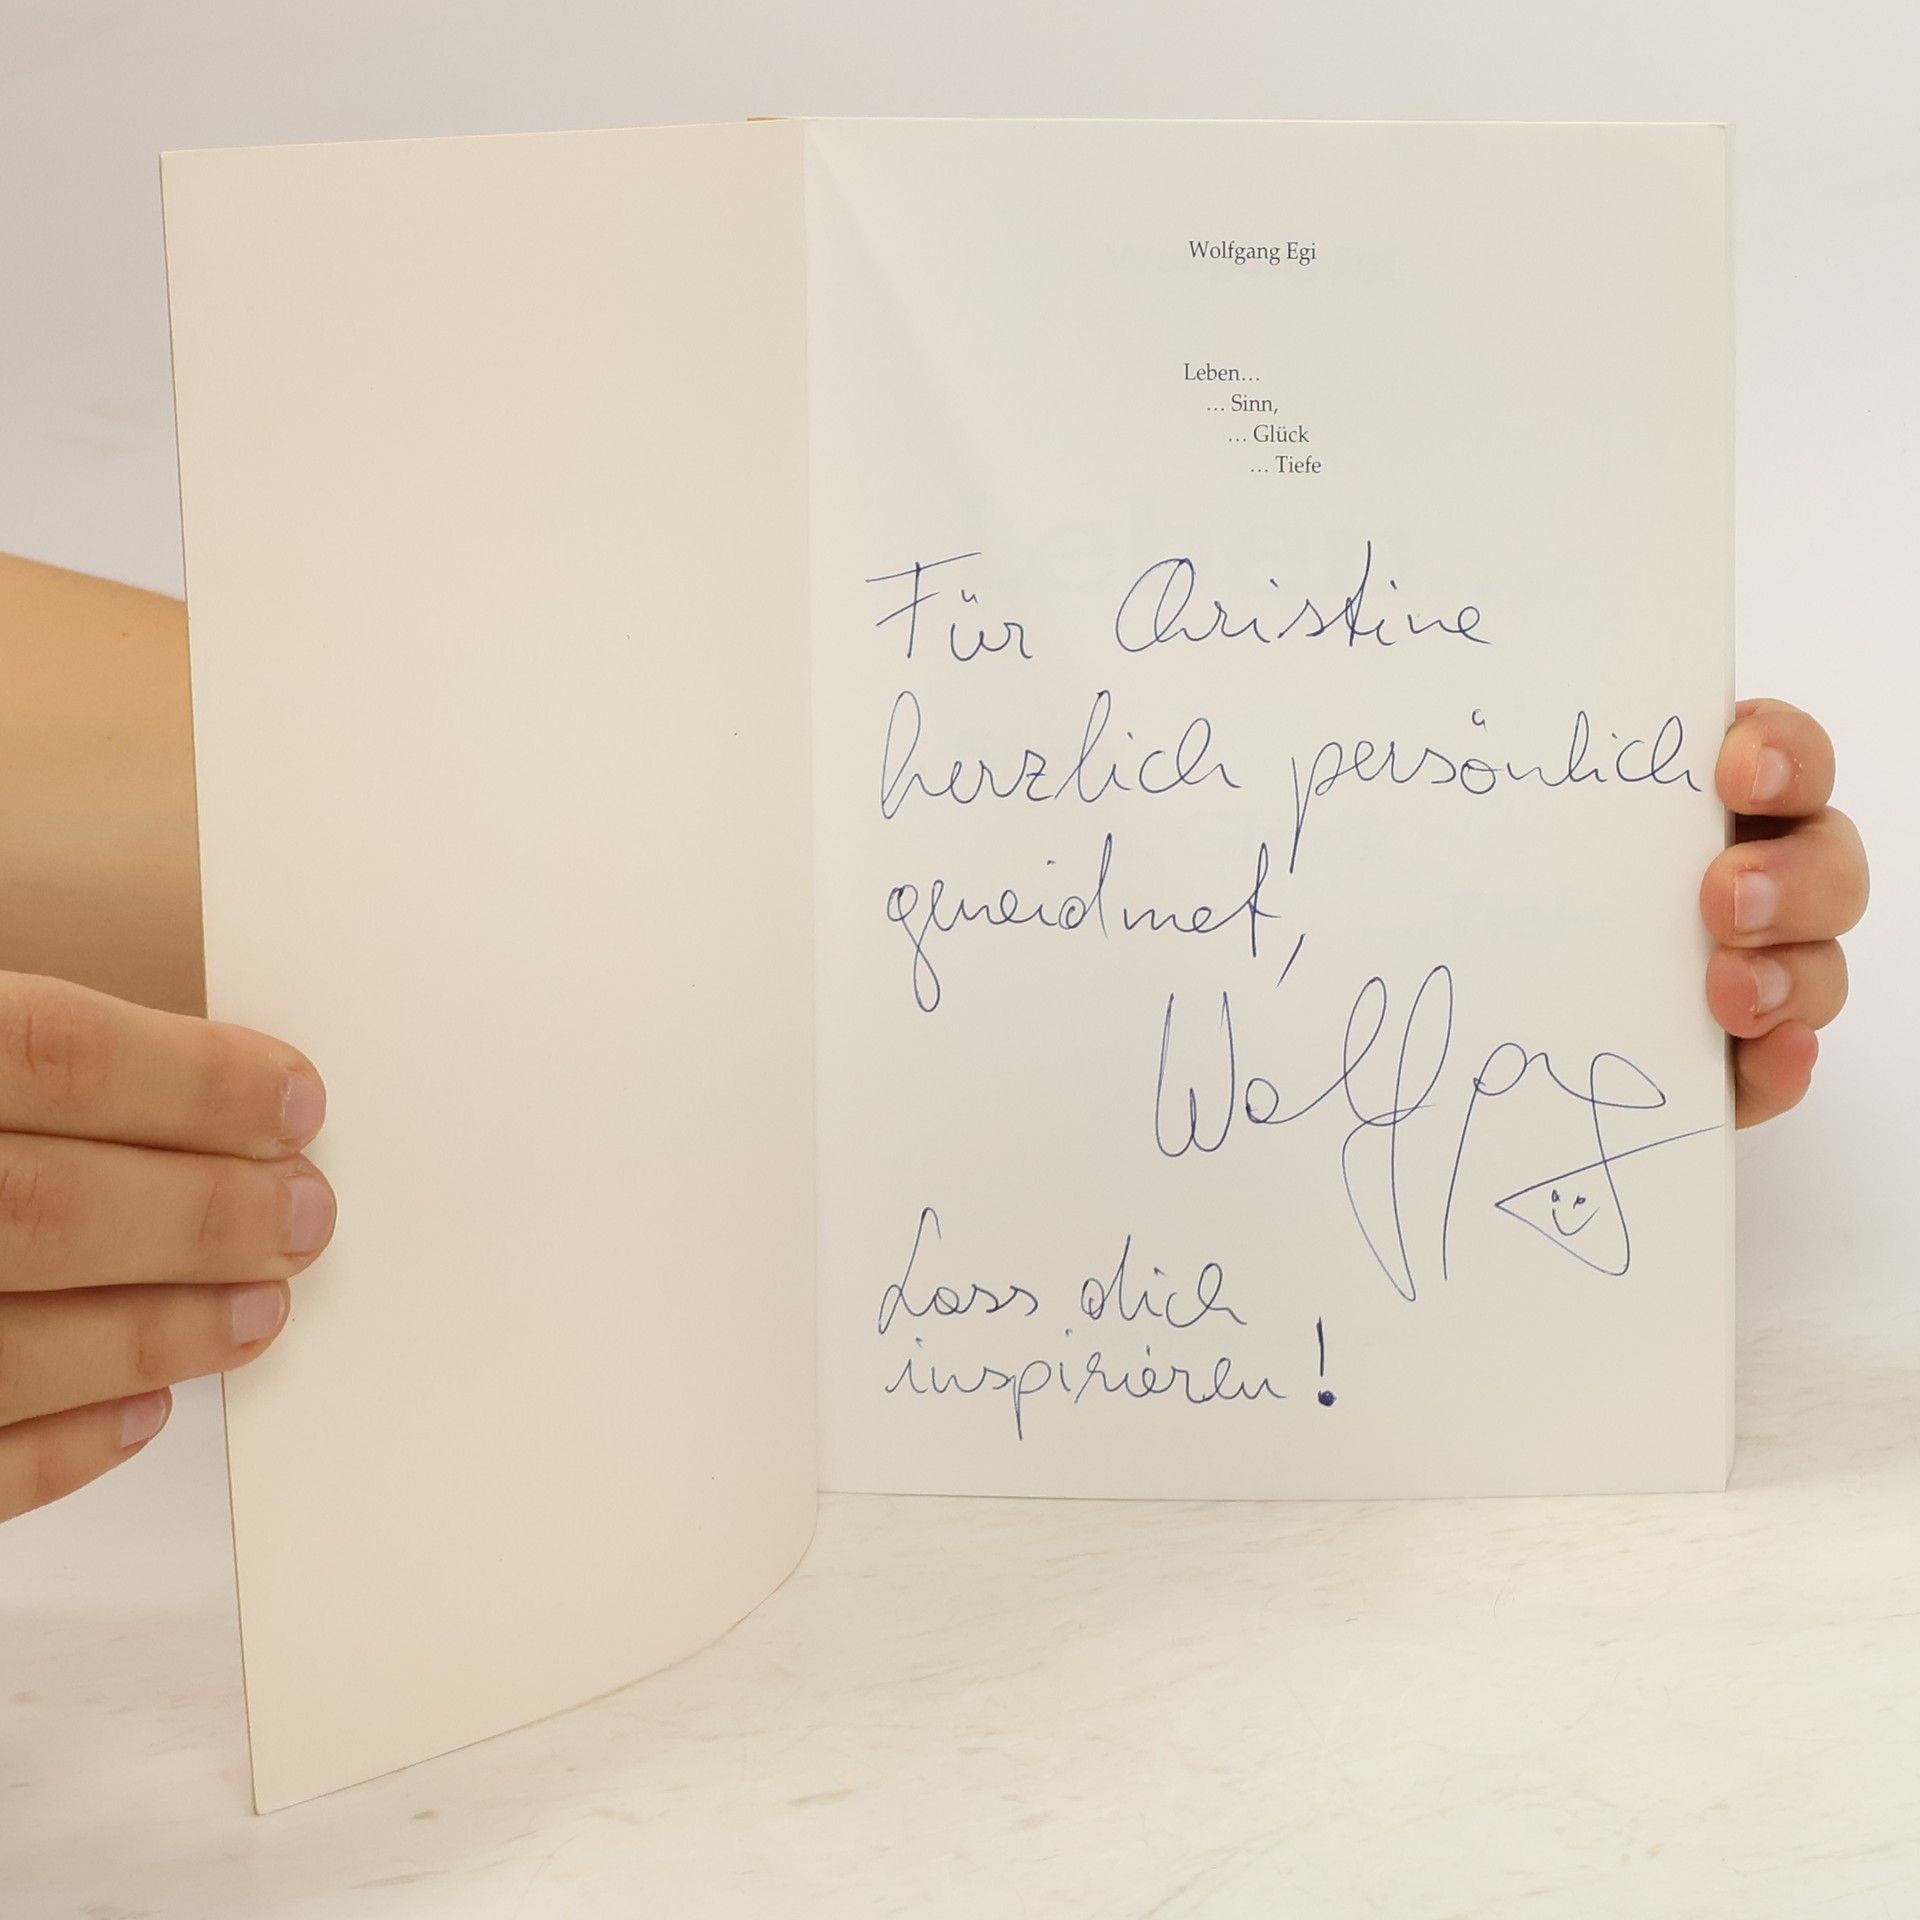 Wolfgang Egi
Leben…
… Sinn,
… Glück
… Tiefe
Für Christine
herzlich persönlich
gewidmet,
Wolfgang
Lass dich
inspirieren!